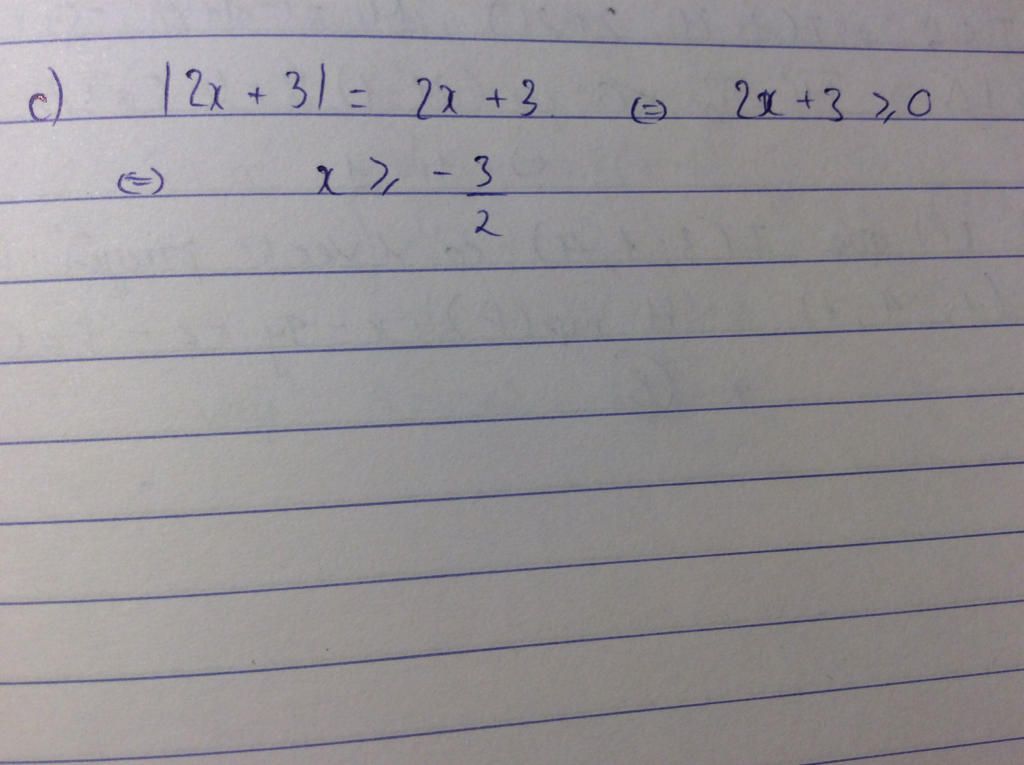 c) |2x + 3| = 2x + 3 ⇔ 2x + 3 ⩾ 0
⇔ x ⩾ - 3/2